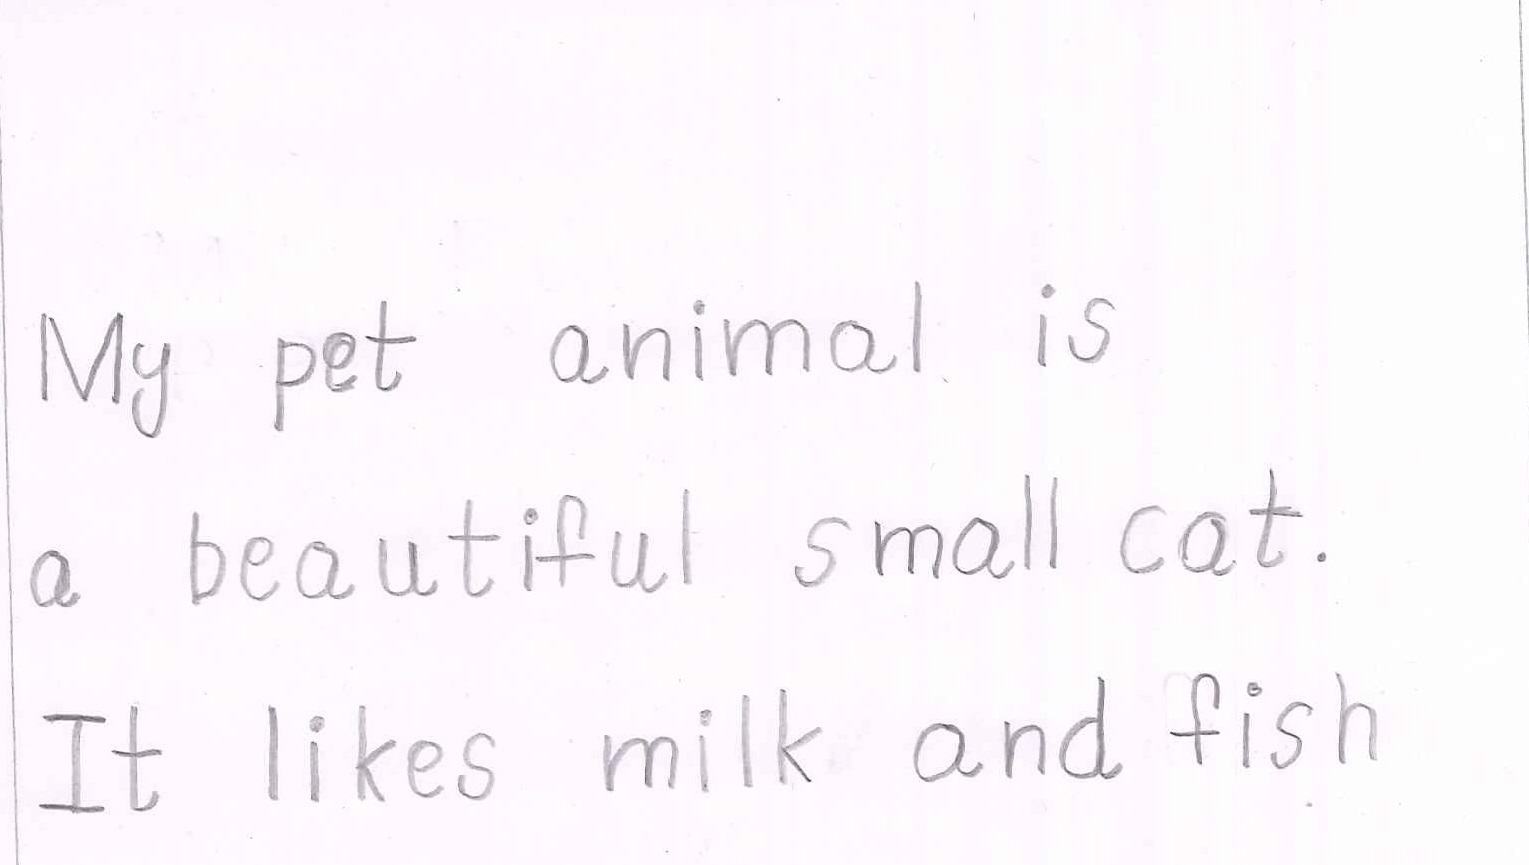 My pet animal is
a beautiful small cat.
It likes milk and fish